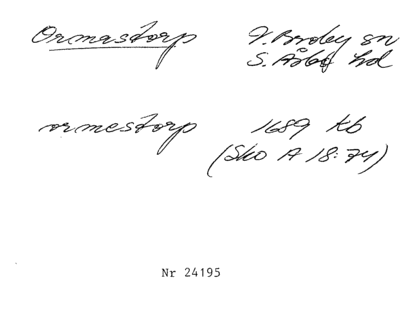 Ormastorp V. Broby sn
S. Åsbo hd
ormestorp 1689 Kb
(Sko A 18:74)
Nr 24195